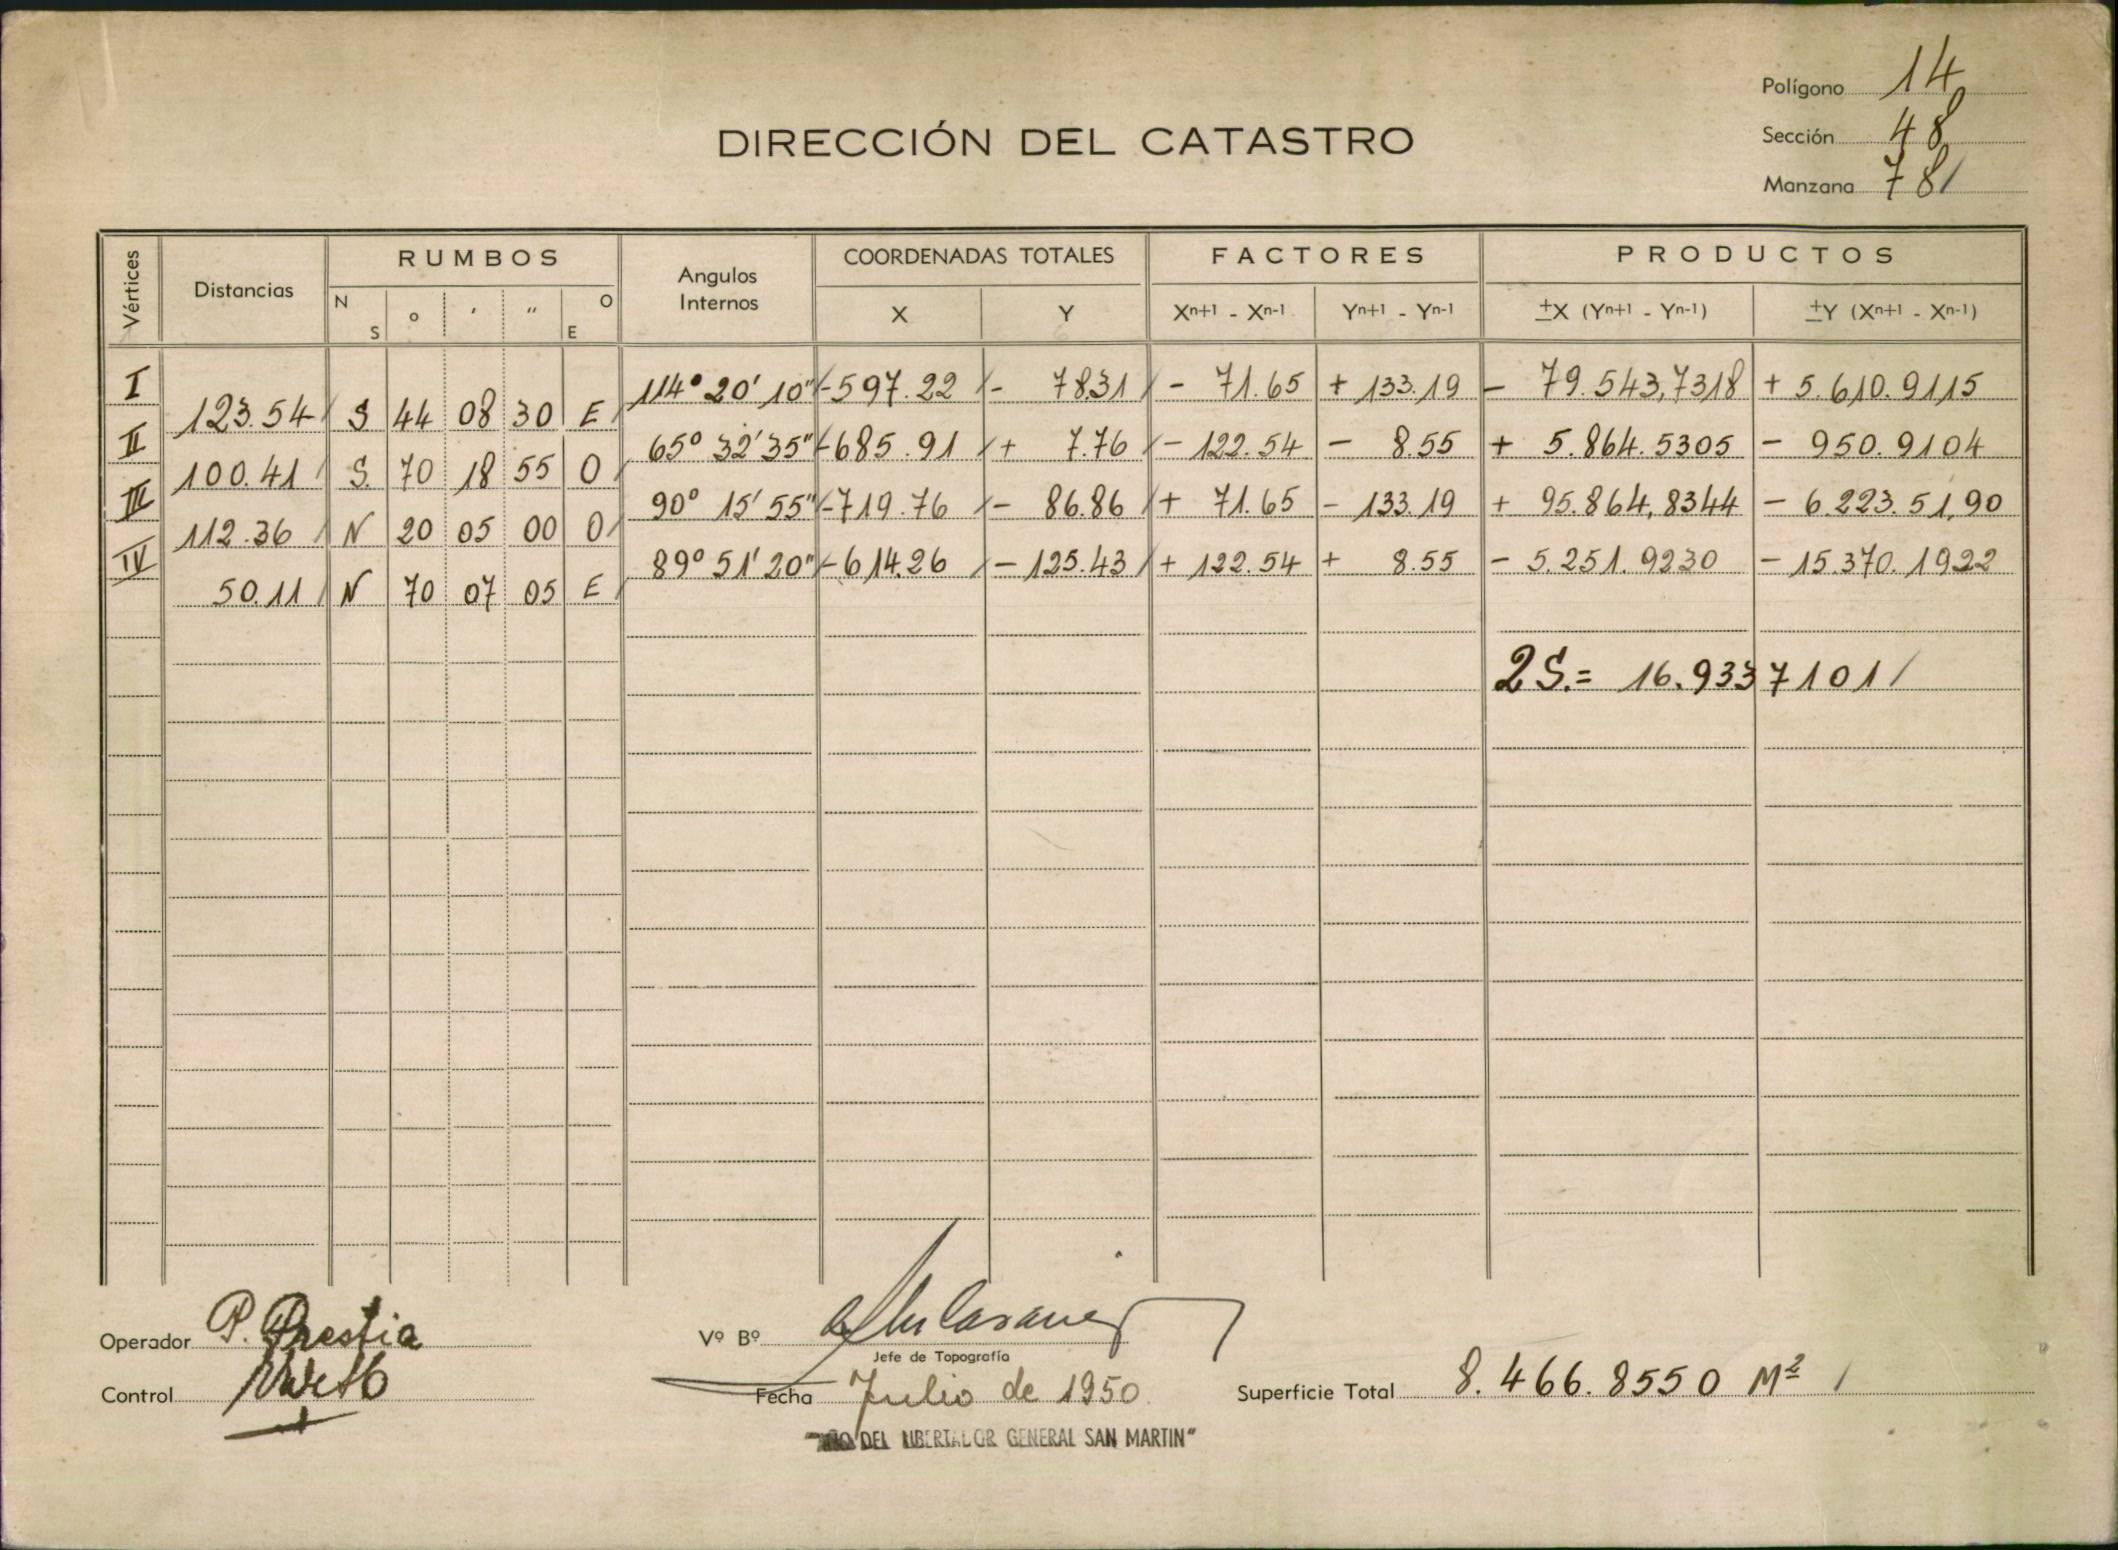 Polígono 14
DIRECCIÓN DEL CATASTRO
Sección 48
Manzana 781
Vértices Distancias RUMBOS Angulos Internos COORDENADAS TOTALES FACTORES PRODUCTOS
N S o ' " O E X Y Xn+1 - Xn-1 Yn+1 - Yn-1 ±X (Yn+1 - Yn-1) ±Y (Xn+1 - Xn-1)
I 114° 20' 10" -597.22 - 78.31 - 71.65 + 133.19 - 79.543,7318 + 5.610.9115
123.54 S 44 08 30 E
II 65° 32' 35" -685.91 + 7.76 - 122.54 - 8.55 + 5.864.5305 - 950.9104
100.41 S. 70 18 55 O
III 90° 15' 55" -719.76 - 86.86 + 71.65 - 133.19 + 95.864,8344 - 6.223.51,90
112.36 N 20 05 00 O
IV 89° 51' 20" -614.26 - 125.43 + 122.54 + 8.55 - 5.251.9230 - 15.370.1922
50.11 N 70 07 05 E
2S.= 16.9337101
Operador P. Prestia Vº Bº
Jefe de Topografía
Control Fecha Julio de 1950 Superficie Total 8.466.8550 M2
DEL LIBERTADOR GENERAL SAN MARTIN"